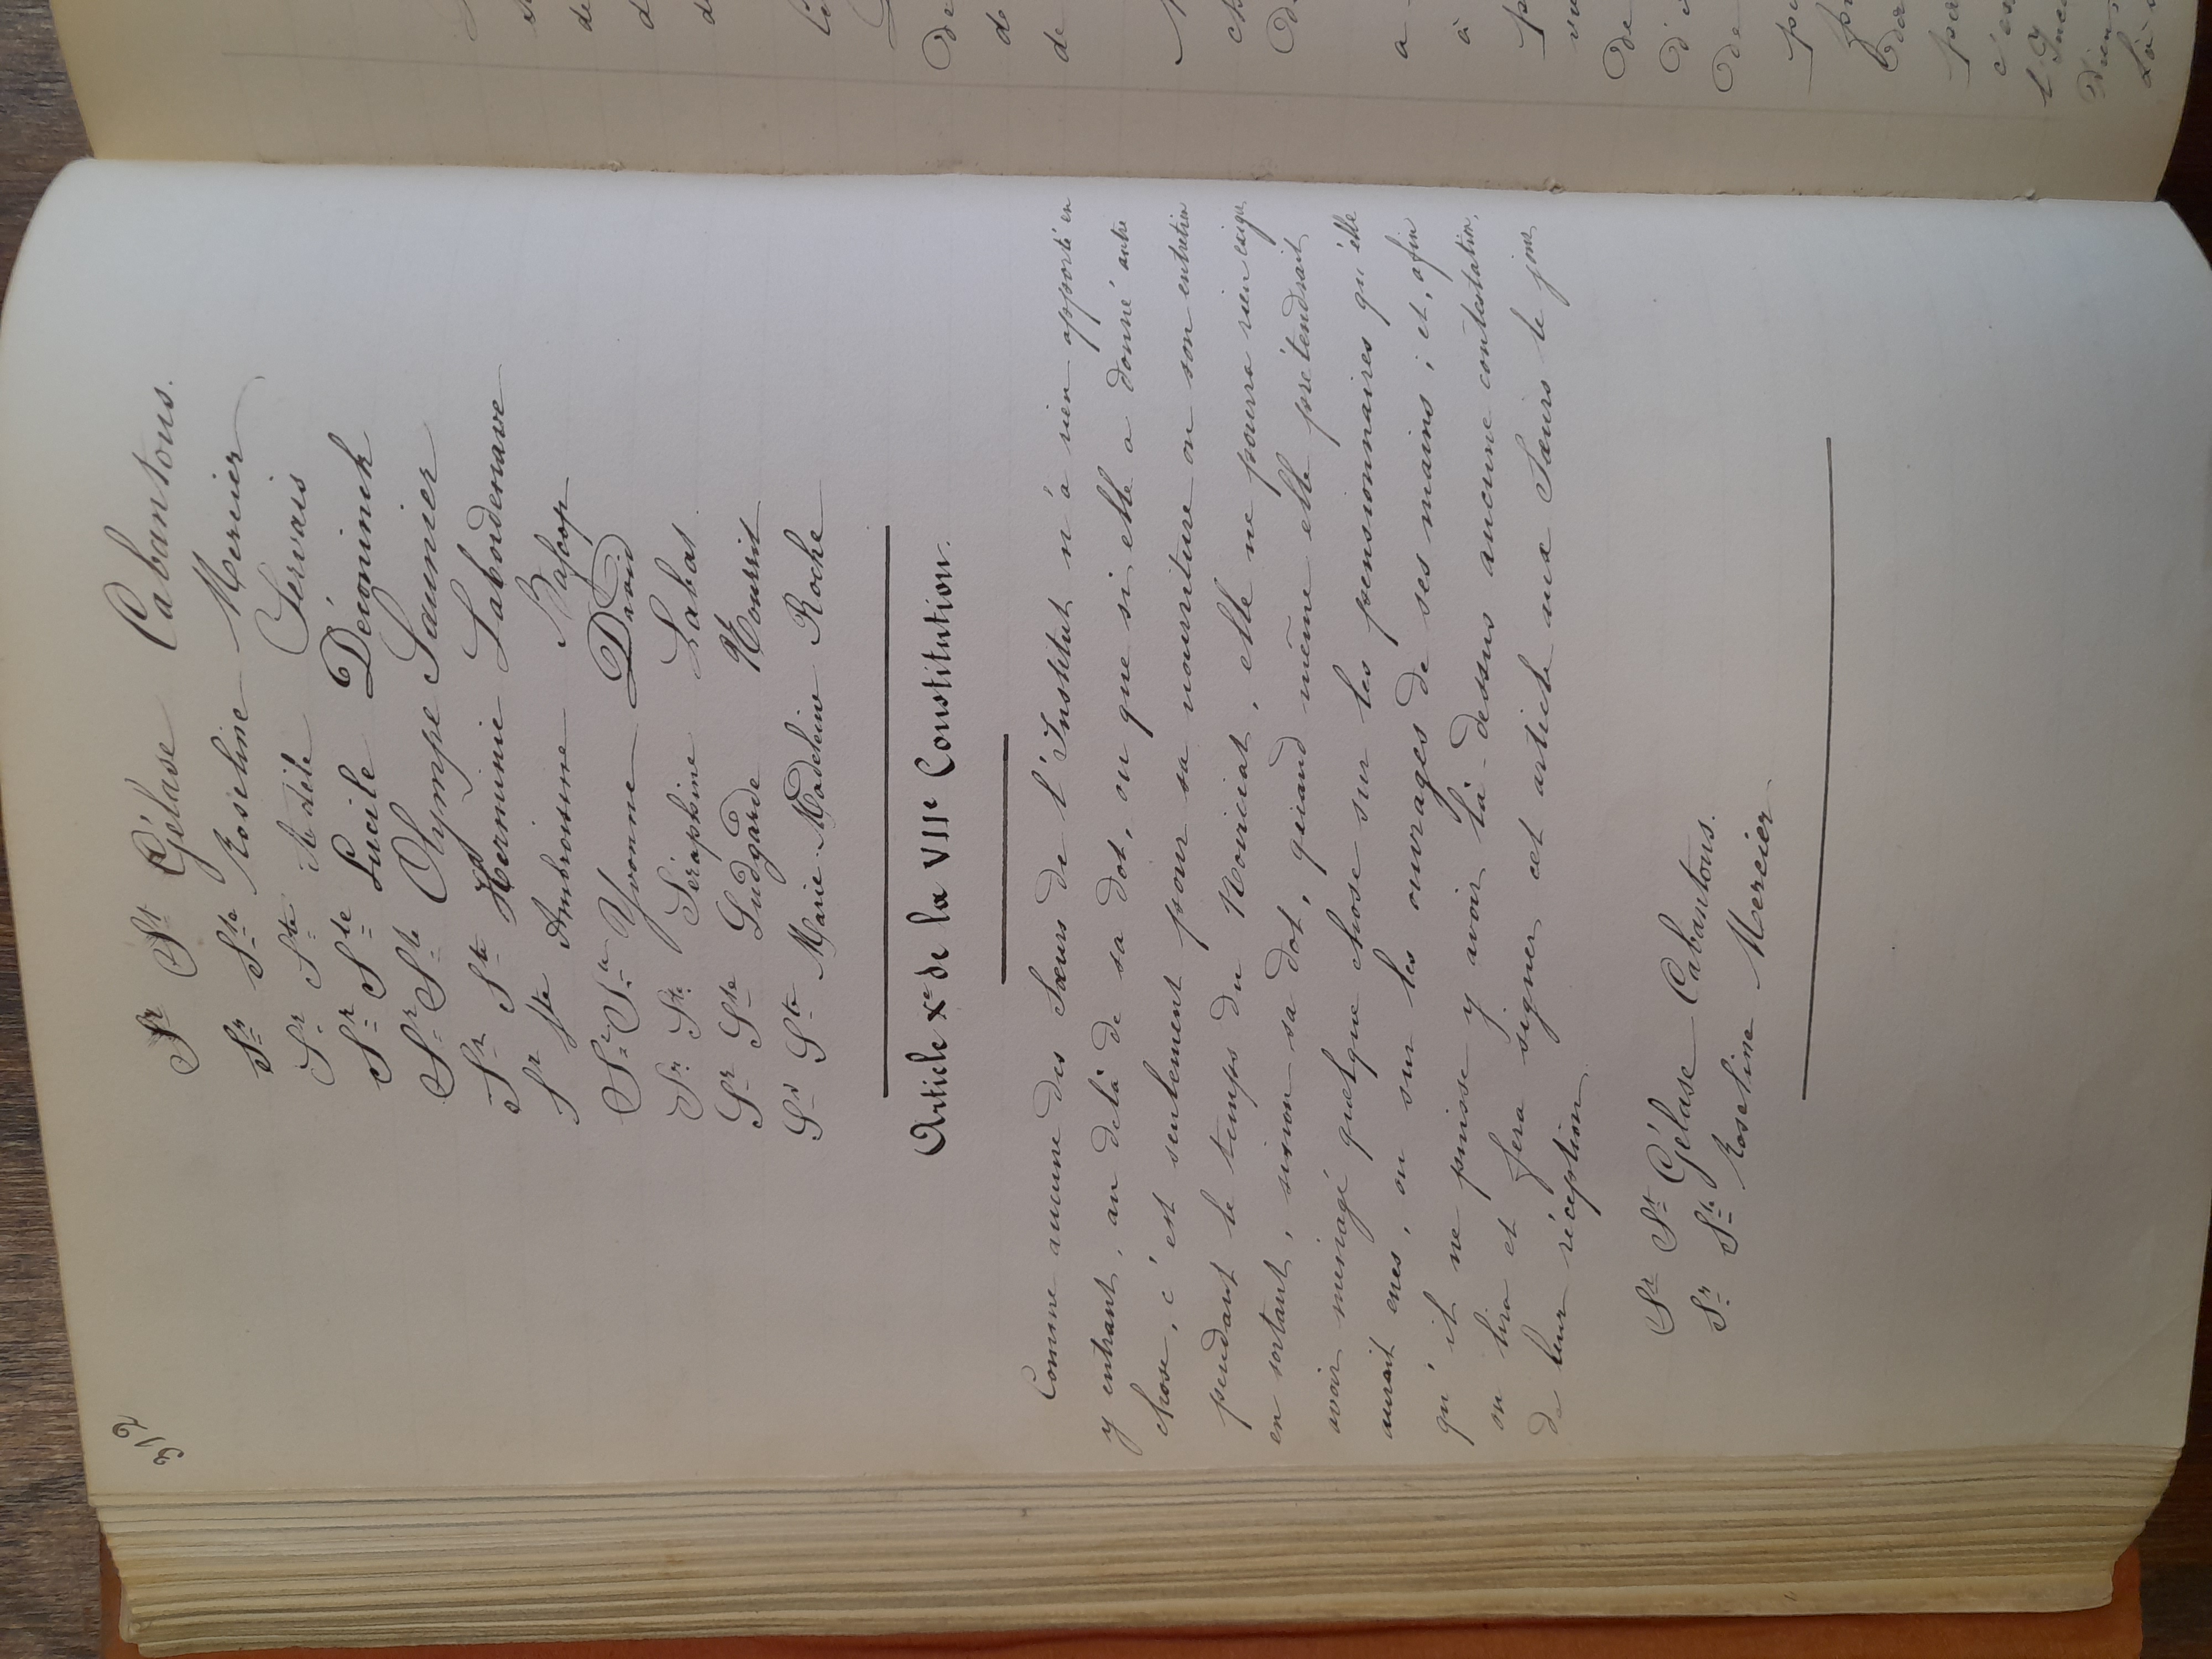 312
Sr St Gélase Cabantous.
Sr Ste Roseline Mercier
Sr Ste Adèle Servais
Sr Ste Lucile Déconinck
Sr Ste Olympe Saunier
Sr Ste Herminie Labordenave
Sr Ste Ambroisine
Sr Ste Yvonne David
Sr Ste Séraphine Labat
Sr Ste Ludgarde Nourrit
Sr Ste Marie-Madeleine Roche
Article Xe de la VIIe Constitution.
Comme aucune des Sœurs de l'Institut n'a rien apporté en
y entrant, au delà de sa dot, ou que si elle a donné autre
chose, c'est seulement pour sa nourriture ou son entretien
pendant le temps du Noviciat, elle ne pourra rien exiger
en sortant, sinon sa dot, quand même elle prétendrait
avoir ménagé quelque chose sur les pensionnaires qu'elle
aurait eues, ou sur les ouvrages de ses mains ; et, afin
qu'il ne puisse y avoir là-dessus aucune contestation,
on lira et fera signer cet article aux Sœurs le jour
de leur réception.
Sr St Gélase Cabantous.
Sr Ste Roseline Mercier